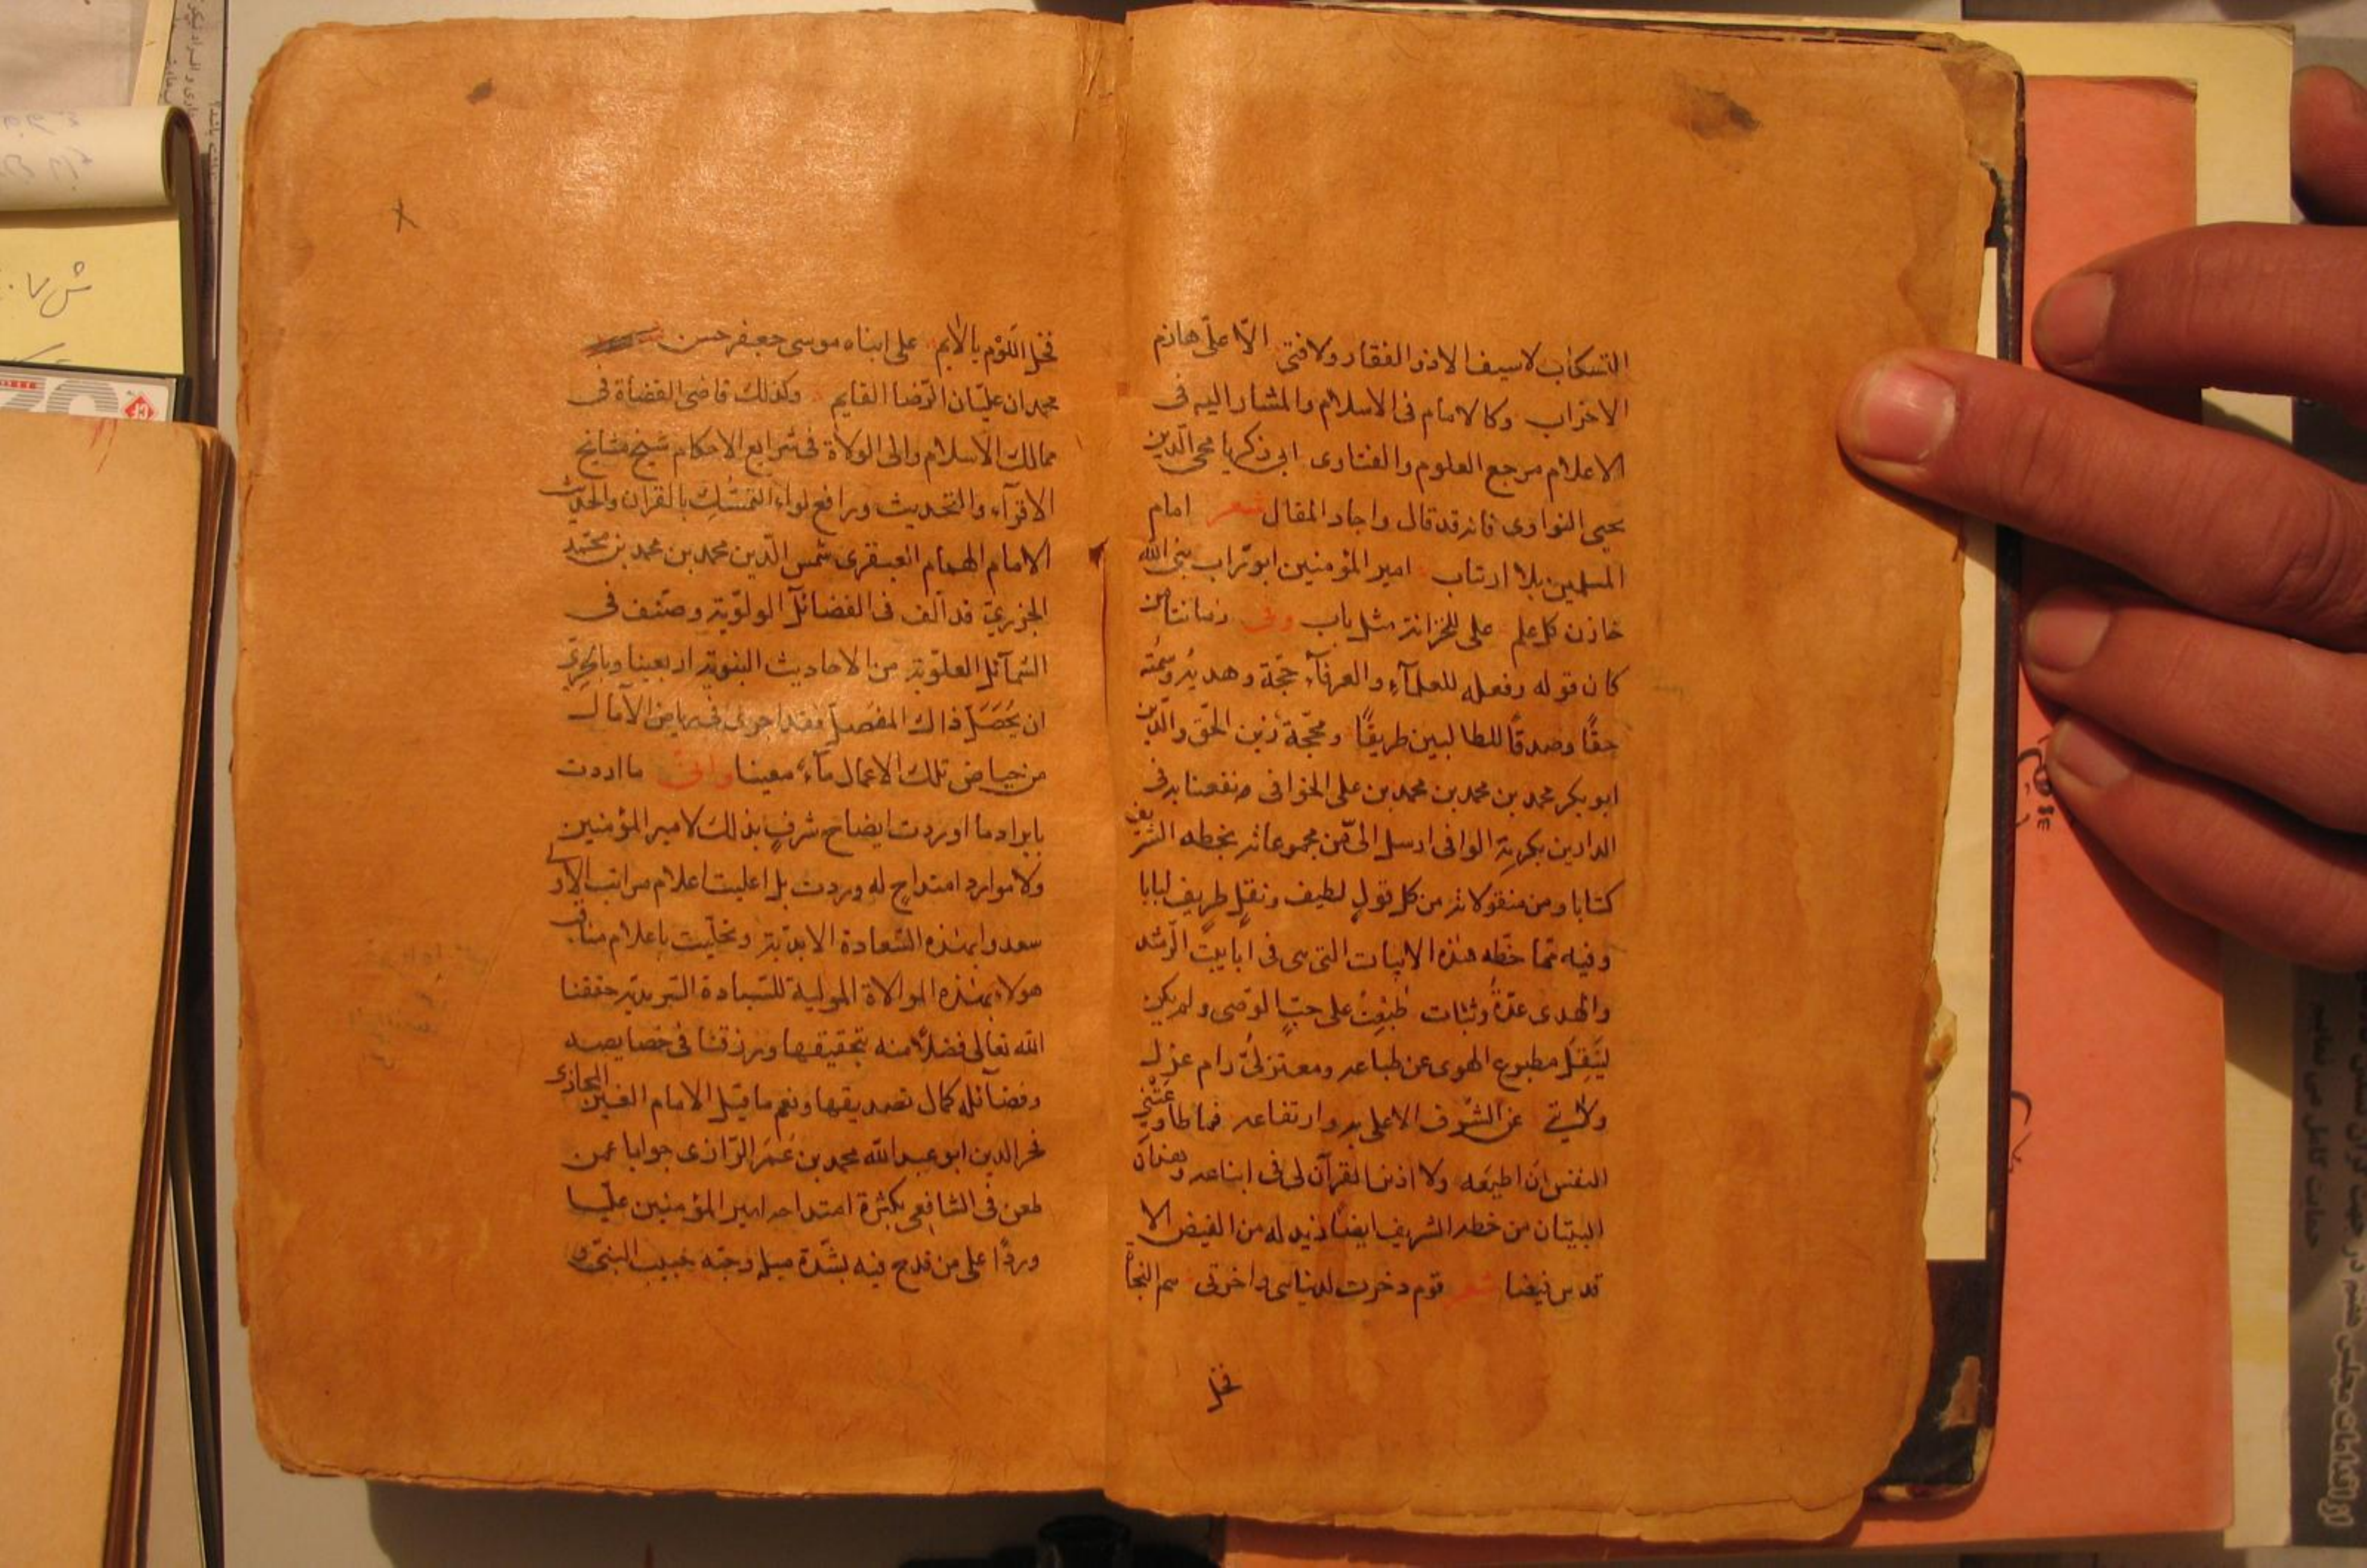 التسكاب لاسيف الا ذو الفقار ولا فتى الّا علىّ هازم
الاحزاب وكالامام فى الاسلام والمشار اليه فى
الاعلام مرجع العلوم والفتاوى ابى ذكريا محى الدّين
يحيى النواوى فانه قد قال واجاد المقال شعر امام
المسلمين بلا ارتاب امير المؤمنين ابو تراب نبى الله
خازن كل علم على للخزانة مثل باب وفى زماننا من
كان قوله وفعله للعلمآء والعرفآء حجّة وهديه وسمته
حقًا وصدقًا للطالبين طريقًا ومحجّة زين الحق والدّين
ابو بكر محمد بن محمد بن محمد بن على الخوافى نفعنا به فى
الدارين بكرمه الوافى ارسل الىّ من مجموعاته بخطه الشريف
كتابا ومن منقولاته من كل قولٍ لطيف ونقلٍ طريف لبابا
وفيه ممّا خطّه هذه الابيات التى هى فى ابابيت الرّشد
والهدى عدّةٌ وثبات طبعت على حبّ الوصى ولم يكن
لينقل مطبوع الهوى عن طباعه ومعتزلىٌّ رام عزل
ولايتى عن الشرف الاعلى به وارتفاعه فما طاوعتنى
النفس ان اطيعه ولا اذن القرآن لى فى اتباعه وهذان
البيتان من خطه الشريف ايضًا زيد له من الفيض الا
قدس فيضا شعر قوم دخرت لدنياى واخرتى هم النجاة
فخل
فخل اللّوْم يا لائم على ابناه موسى جعفر حسن
محمدان عليّان الرّضا القايم وكذلك قاضى القضاة فى
ممالك الاسلام والى الولاة فى شرايع الاحكام شيخ مشايخ
الاقرآء والتحديث ورافع لواء التمسّك بالقران والحديث
الامام الهمام العبقرى شمس الدّين محمد بن محمد بن محمّد
الجزرىّ قد الف فى الفضائل الولويّة وصنّف فى
الشمآئل العلويّة من الاحاديث النبوية اربعينا وبالحرىّ
ان يُحَصَّل ذاك المفصل فقد اجرى فى رياض الآمال
من حياض تلك الاعمال مآءً معينا وانّى ما اردت
بايراد ما اوردت ايضاح شرفٍ بذلك لامير المؤمنين
ولا موارد امتداحٍ له وردت بل اعليت اعلام مراتب الاولى
سعدوا بهذه السّعادة الابديّة وتحلّيت باعلام مناقب
هولاء بهذه الموالاة المولية للسّيادة السّرمديّة حققنا
الله تعالى فضلًا منه بتحقيقها ورزقنا فى خصايصه
وفضآئله كمال تصديقها ونعم ما قيل الامام الغير المجازى
فخر الدين ابو عبد الله محمد بن عُمَر الرّازى جوابا عمن
طعن فى الشافعى بكثرة امتداحه امير المؤمنين عليّا
وردًّا على من قدح فيه بشدّة ميله وحبّه حبيب النبىّ و